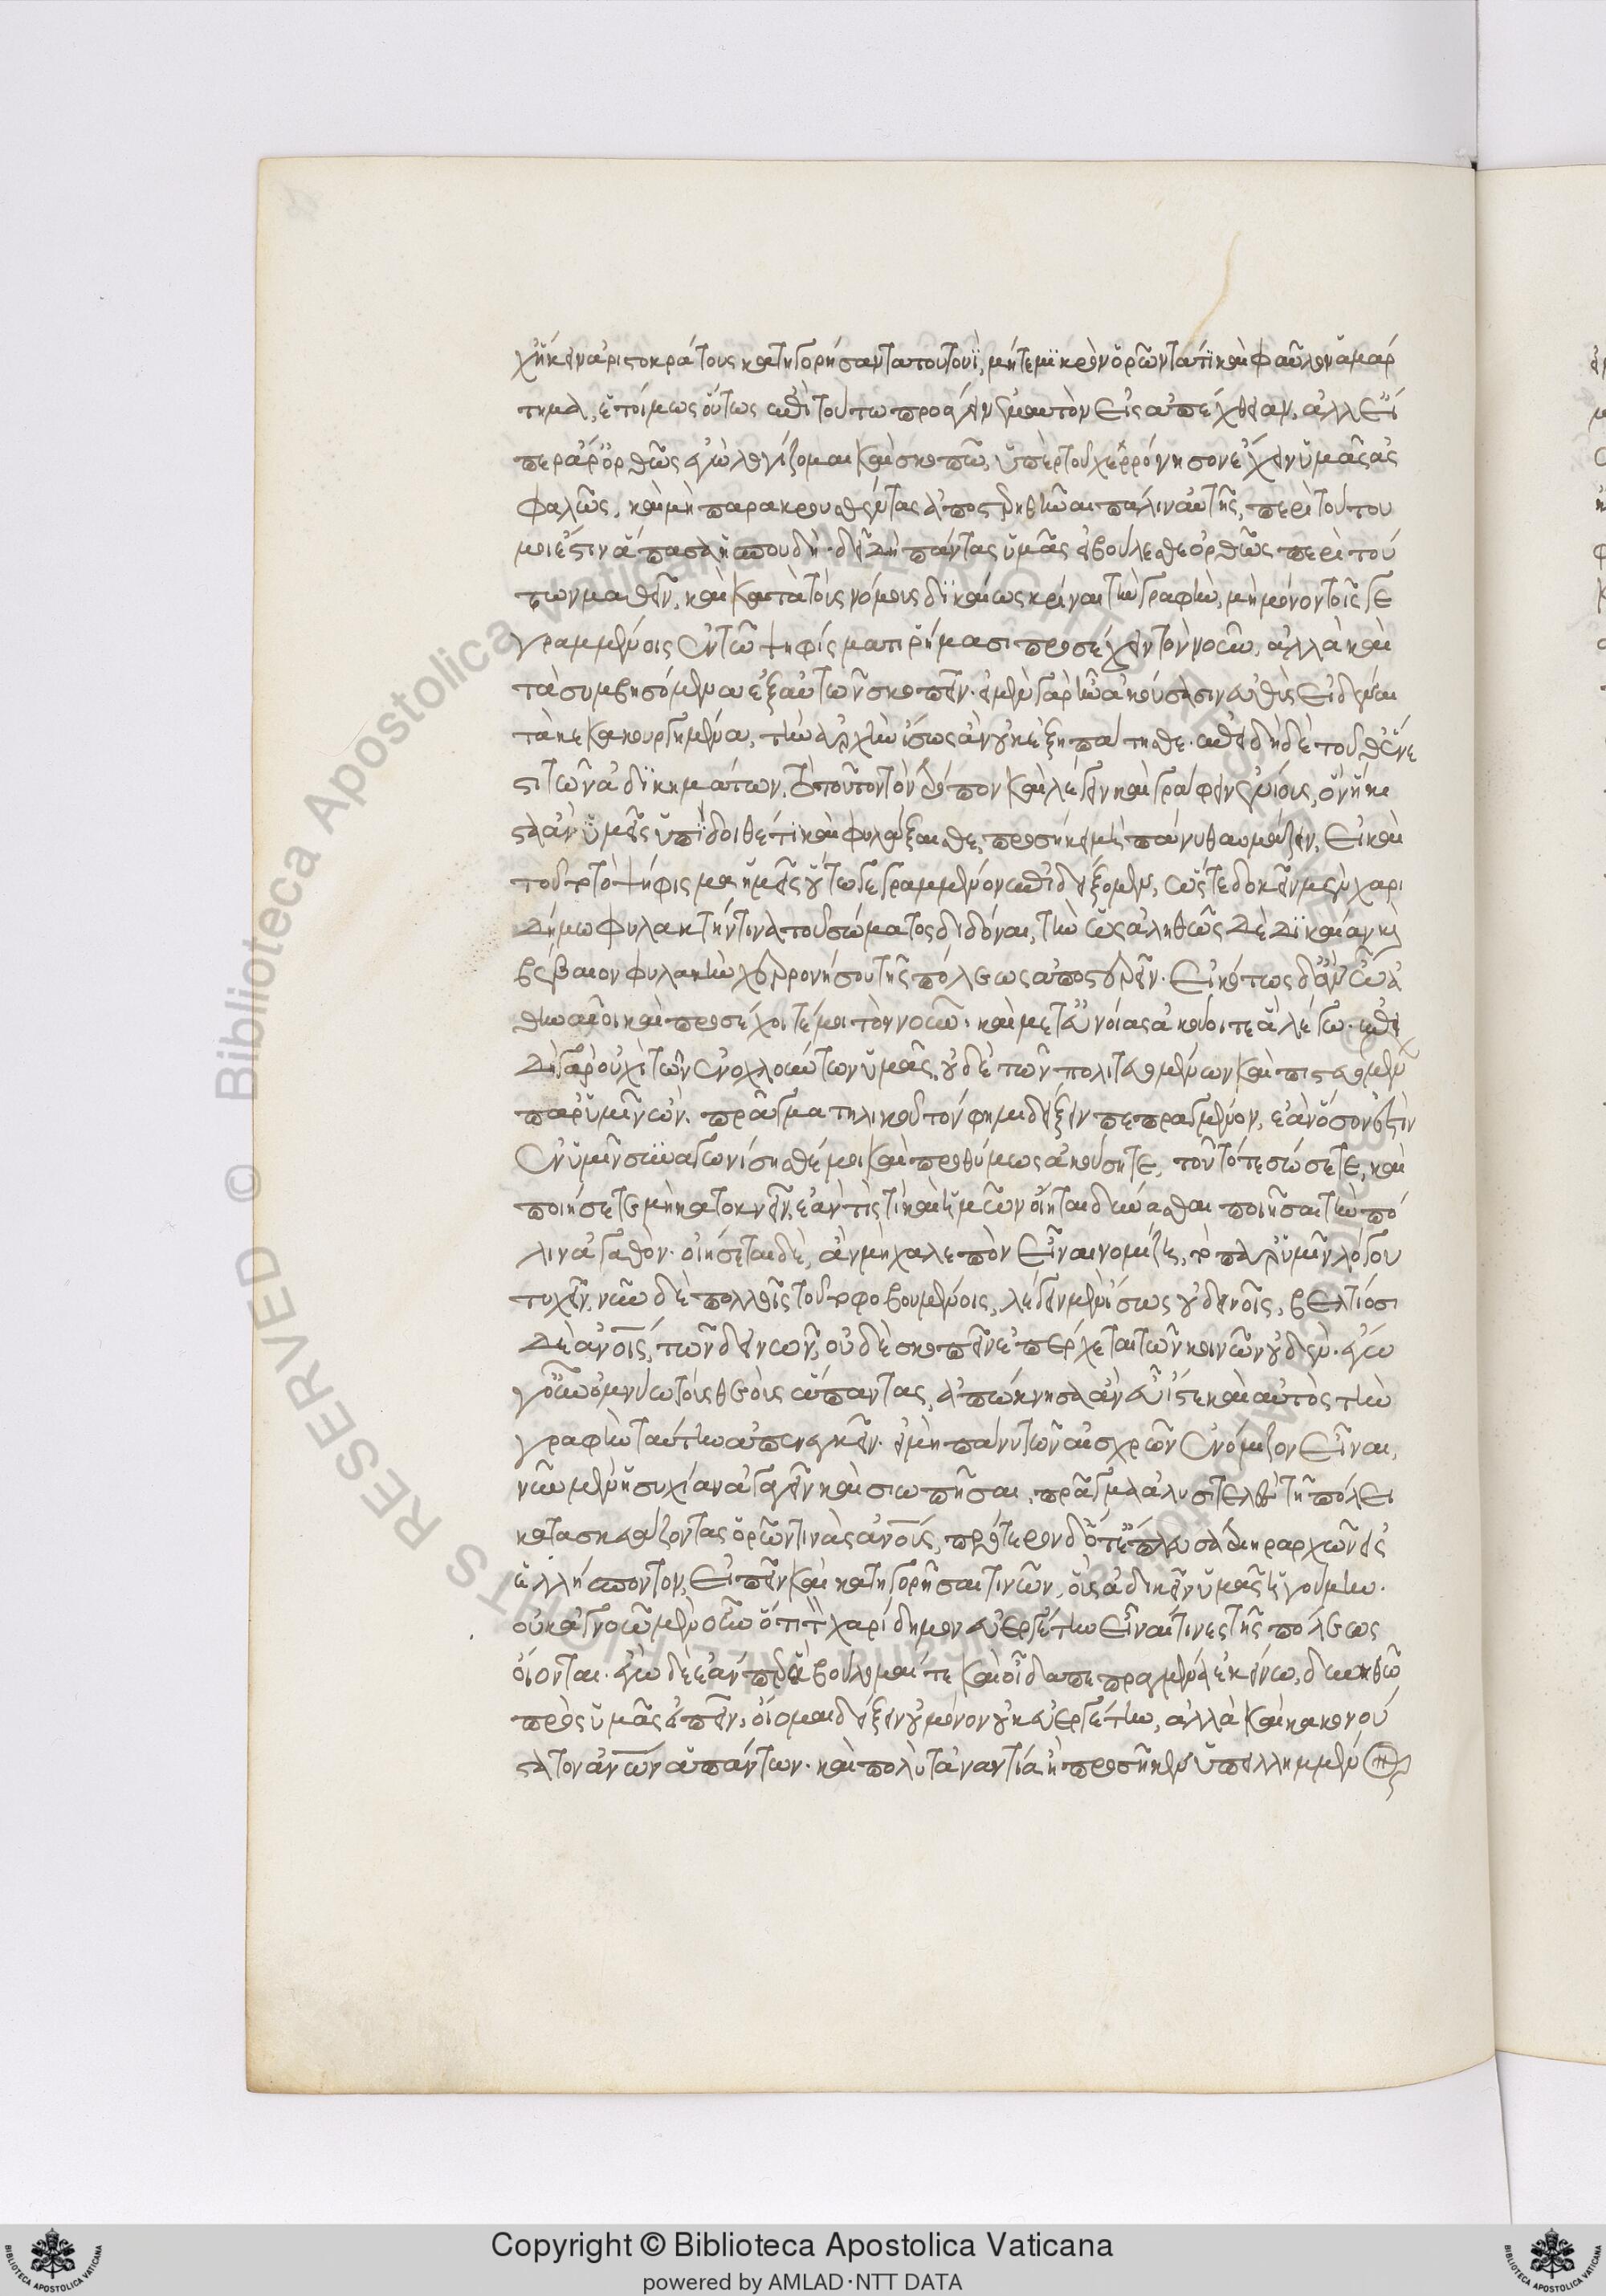 χ' ἥκειν ἀριστοκράτους κατηγορήσαντα τουτουῒ, μήτε μϊκρὸν ὁρῶντά τϊ καὶ φαῦλον ἁμάρ
τημα, ἑτοίμως οὕτως ἐπὶ τούτω προάγειν ἐμαυτὸν εἰς ἀπέχθειαν, ἀλλ' εἴ
περ ἄρ' ὀρθῶς ἐγὼ λογίζομαι καὶ σκοπῶ, ὑπὲρ τοῦ χερρόνησον ἔχειν ὑμᾶς ἀσ
φαλῶς, καὶ μὴ παρακρουσθέντας ἀποστερηθῆναι πάλιν αὐτῆς, περὶ τούτου
μοι ἐστὶν ἅπασα ἡ σπουδή· δεῖ δὴ πάντας ὑμᾶς εἰ βούλεσθε ὀρθῶς περὶ τού
των μαθεῖν, καὶ κατὰ τοὺς νόμους δϊκαίως κρίναι τὴν γραφὴν, μὴ μόνον τοῖς γε
γραμμένοις ἐν τῶ ψηφίσματι ῥήμασι προσέχειν τὸν νοῦν, ἀλλὰ καὶ
τὰ συμβησόμενα ἐξ αὐτῶν σκοπεῖν· εἰ μὲν γὰρ ἦν ἀκούσασιν εὐθὺς εἰδέναι
τὰ κεκακουργημένα, τὴν ἀρχὴν ἴσως ἂν οὐκ ἐξηπάτησθε· ἐπειδὴ δὲ τοῦθ' ἕν ἐ
στι τῶν ἀδϊκημάτων, τὸ τοῦτον τὸν τρόπον καὶ λέγειν καὶ γράφειν ἐνίους, ὃν ἥκι
στα ἂν ὑμεῖς ὑπΐδοισθέ τϊ καὶ φυλάξαισθε, προσήκει μὴ πάνυ θαυμάζειν, εἰ καὶ
τοῦτο τὸ ψήφισμα ἡμεῖς οὕτω γεγραμμένον ἐπιδείξομεν, ὥστε δοκεῖν μὲν χαρι
δήμω φυλακτήν τινα τοῦ σώματος διδόναι, τὴν ὡς ἀληθῶς δὲ δϊκαίαν καὶ
βέβαιον φυλακὴν χερρονήσου τῆς πόλεως ἀποστερεῖν· εἰκότως δ' ἂν ὦ ἄ
θηναῖοι καὶ προσέχοιτέ μοι τὸν νοῦν· καὶ μετ' εὐνοίας ἀκούοιτε ἃ λέγω· ἐπει
δὴ γὰρ οὐχὶ τῶν ἐνοχλούντων ὑμᾶς, οὐδὲ τῶν πολιτευομένων καὶ πιστευομένων
παρ' ὑμῖν ὢν, πρᾶγμα τηλικοῦτόν φημι δείξειν πεπραγμένον, ἐὰν ὅσον ἐστὶν
ἐν ὑμῖν συναγωνίσησθέ μοι καὶ προθύμως ἀκούσητε, τοῦτό τε σώσετε, καὶ
ποιήσετε μὴ κατοκνεῖν, ἐάν τίς τί καὶ ἡμῶν οἴηται δύνασθαι ποιῆσαι τὴν πό
λιν ἀγαθόν· οἰήσεται δὲ, ἂν μὴ χαλεπὸν εἶναι νομίζη, τὸ παρ' ὑμῖν λόγου
τυχεῖν, νῦν δὲ πολλοῖς τοῦτο φοβουμένοις, λέγειν μὲν ἴσως οὐ δεινοῖς, βελτίοσι
δὲ ἀνοις, τῶν δεινῶν, οὐδὲ σκοπεῖν ἐπέρχεται τῶν κοινῶν οὐδέν· ἐγὼ
γοῦν ὀμνύω τοὺς θεοὺς ἅπαντας, ἀπώκνησα ἂν εὖ ἴστε καὶ αὐτὸς τὴν
γραφὴν ταύτην ἀπενεγκεῖν· εἰ μὴ πάνυ τῶν αἰσχρῶν ἐνόμιζον εἶναι,
νῦν μὲν ἡσυχίαν ἀγαγεῖν καὶ σιωπῆσαι, πρᾶγμα ἀλυσιτελὲς τῆ πόλει
κατασκευάζοντας ὁρῶν τινὰς ἀνους, πρότερον δ' ὅτε ἔπλευσα τριηραρχῶν εἰς
ἑλλήσποντον, εἰπεῖν καὶ κατηγορῆσαι τινῶν, οὓς ἀδικεῖν ὑμᾶς ἡγούμην.
οὐκ ἀγνοῶ μὲν οὖν ὅτι τὸν χαρίδημον εὐεργέτην εἶναι τινες τῆς πόλεως
οἴονται· ἐγὼ δὲ ἐὰν πρᾶ βούλομαί τε καὶ οἶδα πεπραγμένα ἐκείνω, δυνηθῶ
πρὸς ὑμᾶς εἰπεῖν, οἴομαι δείξειν οὐ μόνον οὐκ εὐεργέτην, ἀλλὰ καὶ κακονού
στατον ἀνων ἁπάντων· καὶ πολὺ τἀναντία ἢ προσῆκεν ὑπειλημμέν